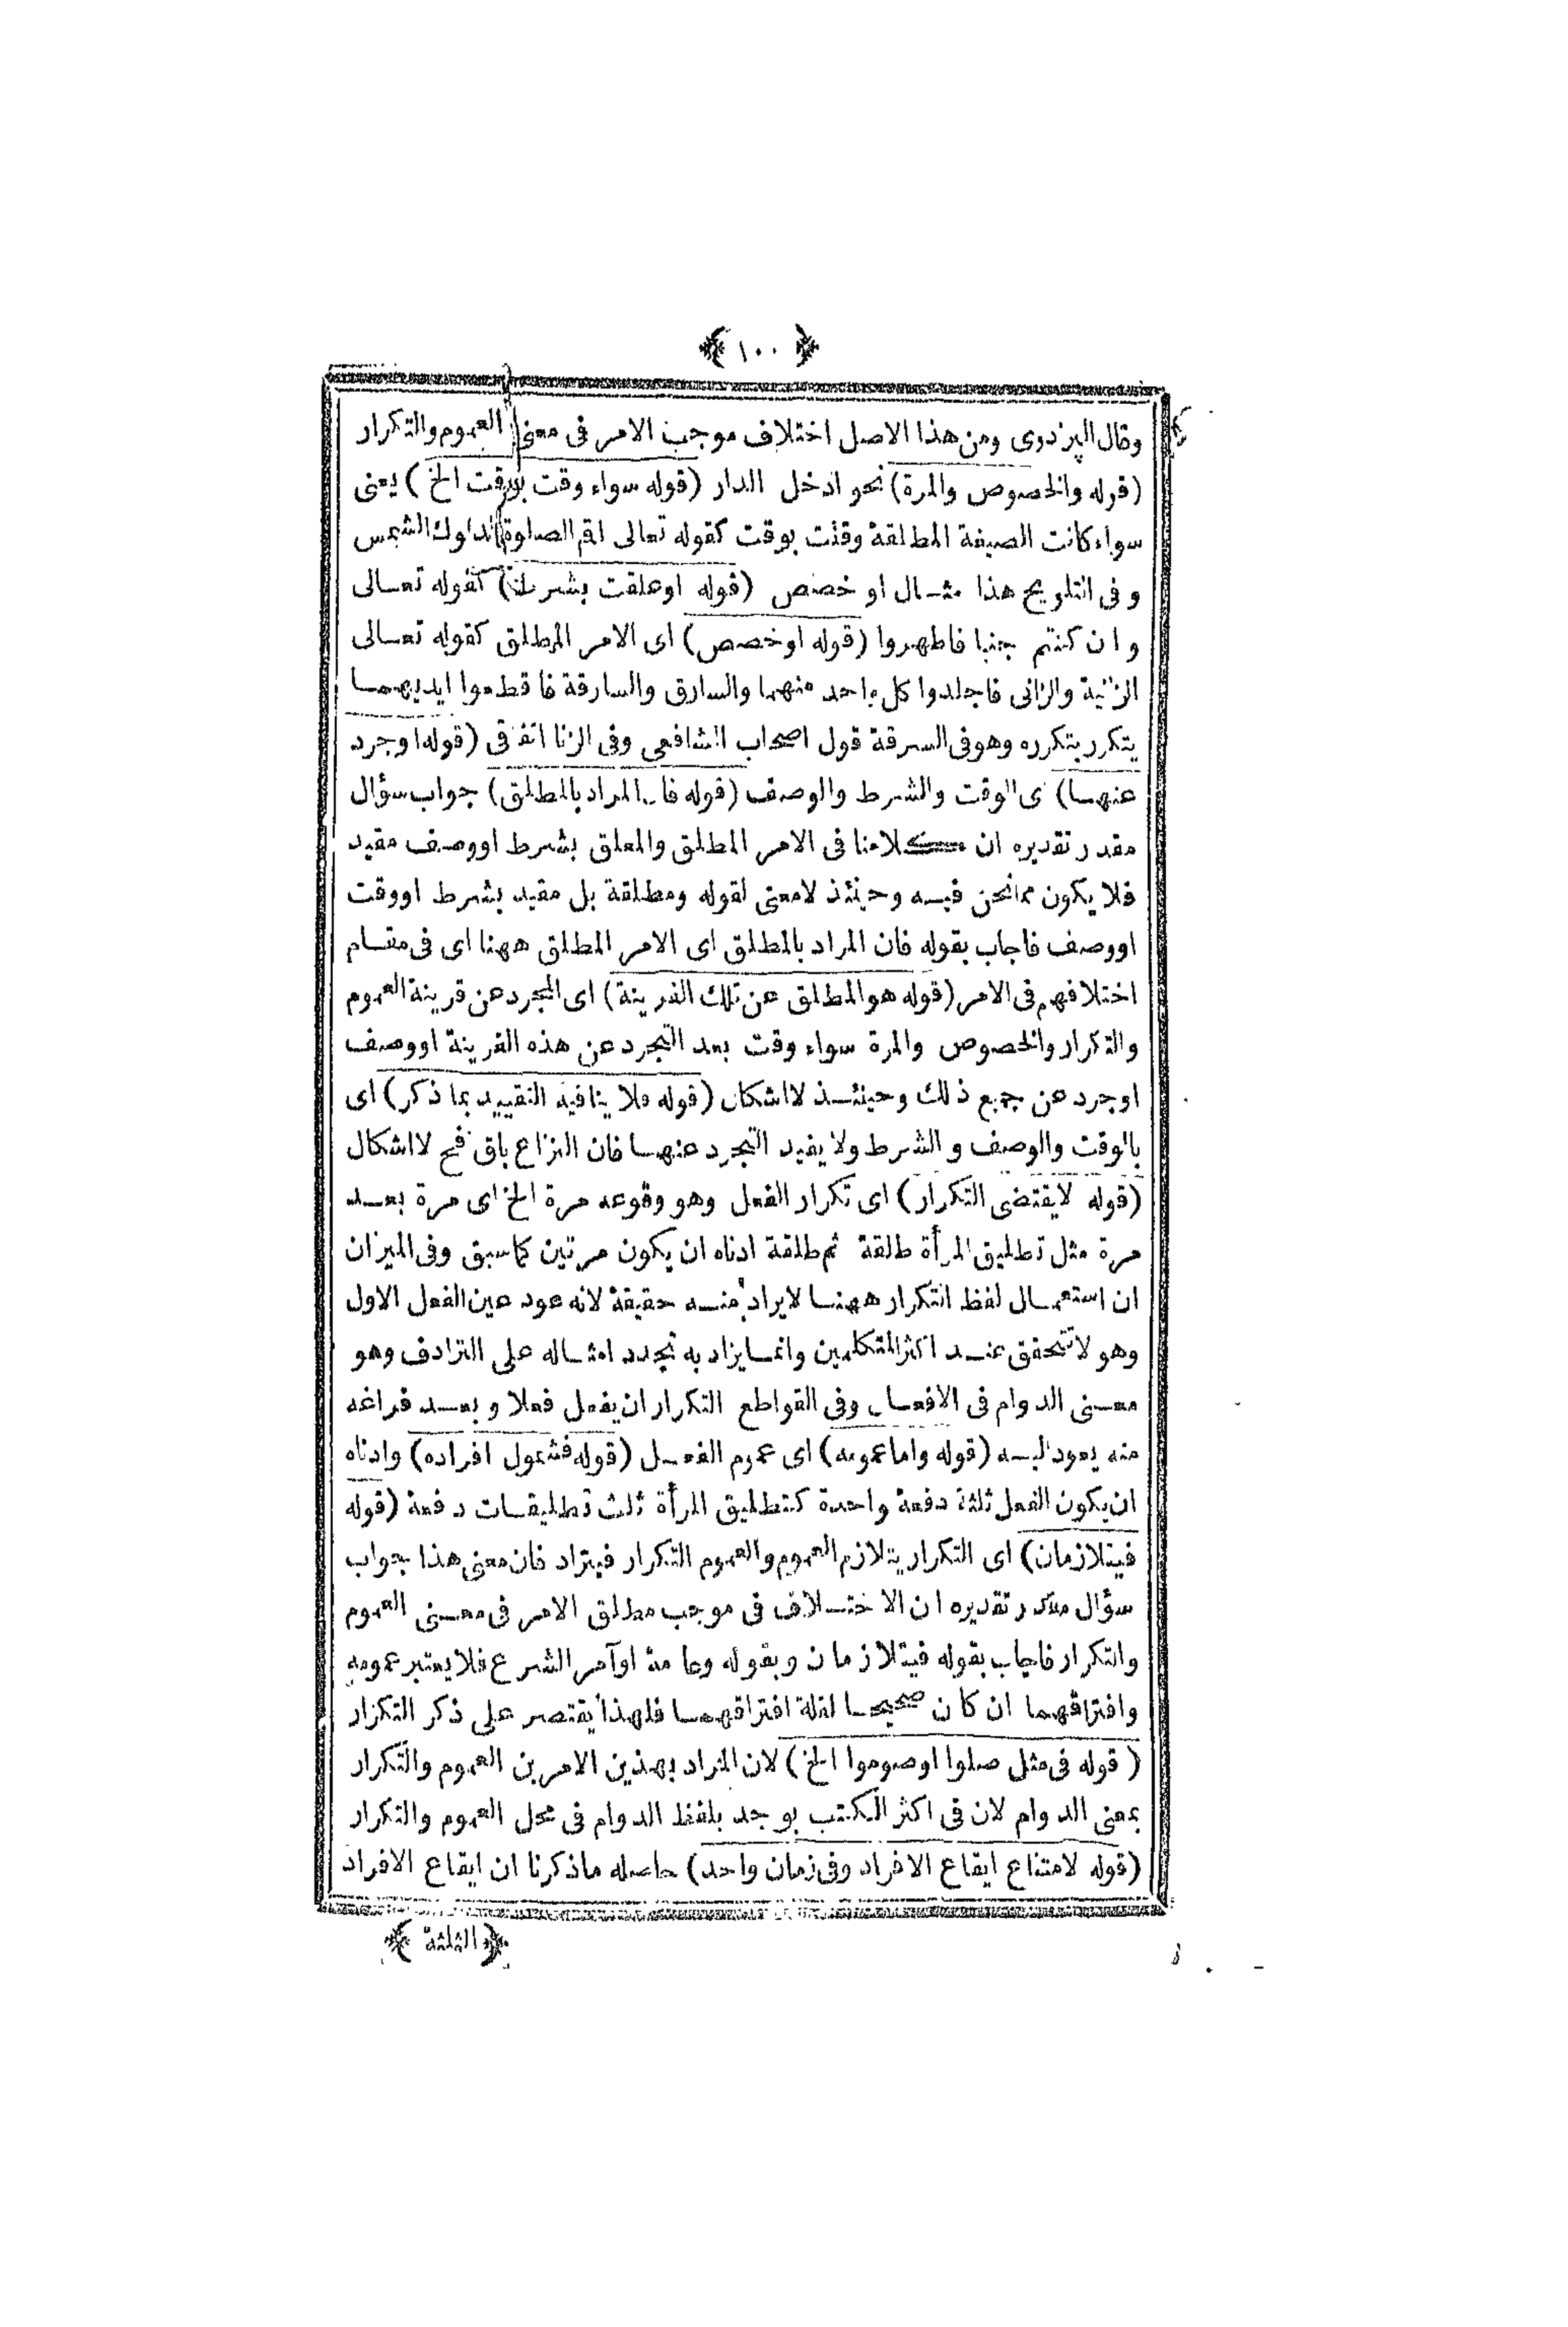 ﴿ ١٠٠ ﴾
وقال البزدوى ومن هذا الاصل اختلاف موجب الامر فى معنى العموم والتكرار
(قوله والخصوص والمرة) نحو ادخل الدار (قوله سواء وقت بوقت الخ) يعنى
سواء كانت الصيغة المطلقة وقتت بوقت كقوله تعالى اقم الصلوة لدلوك الشمس
و فى التلويح هذا مثال او خصص (قوله اوعلقت بشرط) كقوله تعالى
و ان كنتم جنبا فاطهروا (قوله اوخصص) اى الامر المطلق كقوله تعالى
الزانية والزانى فاجلدوا كل واحد منهما والسارق والسارقة فاقطعوا ايديهما
يتكرر بتكرره وهو فى السرقة قول اصحاب الشافعى وفى الزنا اتفاقى (قوله اوجرد
عنهما) اى الوقت والشرط والوصف (قوله فان المراد بالمطلق) جواب سؤال
مقدر تقديره ان كلامنا فى الامر المطلق والمعلق بشرط اووصف مقيد
فلا يكون مما نحن فيه وحينئذ لامعنى لقوله ومطلقة بل مقيد بشرط اووقت
اووصف فاجاب بقوله فان المراد بالمطلق اى الامر المطلق ههنا اى فى مقام
اختلافهم فى الامر (قوله هو المطلق عن تلك القرينة) اى المجرد عن قرينة العموم
والتكرار والخصوص والمرة سواء وقت بعد التجرد عن هذه القرينة اووصف
اوجرد عن جميع ذلك وحينئذ لااشكال (قوله فلا ينافيه التقييد بما ذكر) اى
بالوقت والوصف و الشرط ولا يفيد التجرد عنهما فان النزاع باق فح لااشكال
(قوله لايقتضى التكرار) اى تكرار الفعل وهو وقوعه مرة الخ اى مرة بعد
مرة مثل تطليق المرأة طلقة ثم طلقة ادناه ان يكون مرتين كماسبق وفى الميزان
ان استعمال لفظ التكرار ههنا لايراد منه حقيقة لانه عود عين الفعل الاول
وهو لا تتحقق عند اكثر المتكلمين وانما يراد به تجدد امثاله على الترادف وهو
معنى الدوام فى الافعال وفى القواطع التكرار ان يفعل فعلا و بعد فراغه
منه يعود اليه (قوله واما عمومه) اى عموم الفعل (قوله فشمول افراده) وادناه
ان يكون الفعل ثلثة دفعة واحدة كتطليق المرأة ثلث تطليقات دفعة (قوله
فيتلازمان) اى التكرار يتلازم العموم والعموم التكرار فيتراد فان معنى هذا جواب
سؤال مقدر تقديره ان الاختلاف فى موجب مطلق الامر فى معنى العموم
والتكرار فاجاب بقوله فيتلازمان وبقوله وعامة اوآمر الشرع فلا يعتبر عمومه
وافتراقهما ان كان صحيحا لقلة افتراقهما فلهذا يقتصر على ذكر التكرار
( قوله فى مثل صلوا اوصوموا الخ) لان المراد بهذين الامرين العموم والتكرار
بمعنى الدوام لان فى اكثر الكتب يوجد بلفظ الدوام فى محل العموم والتكرار
(قوله لامتناع ايقاع الافراد وفى زمان واحد) حاصله ماذكرنا ان ايقاع الافراد
﴿ الثلثة ﴾